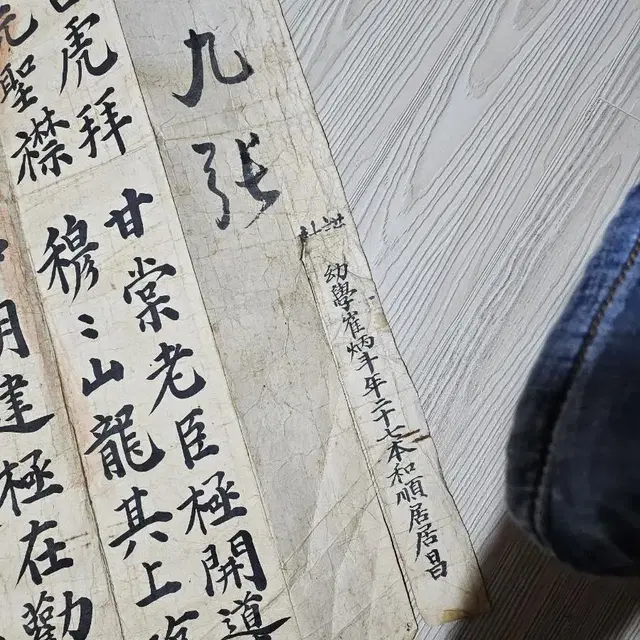 幼學崔炳斗年二十七本和順居居昌
九張
虎拜甘棠老臣極開導
聖襟穆〻山龍其上
月建極在勸